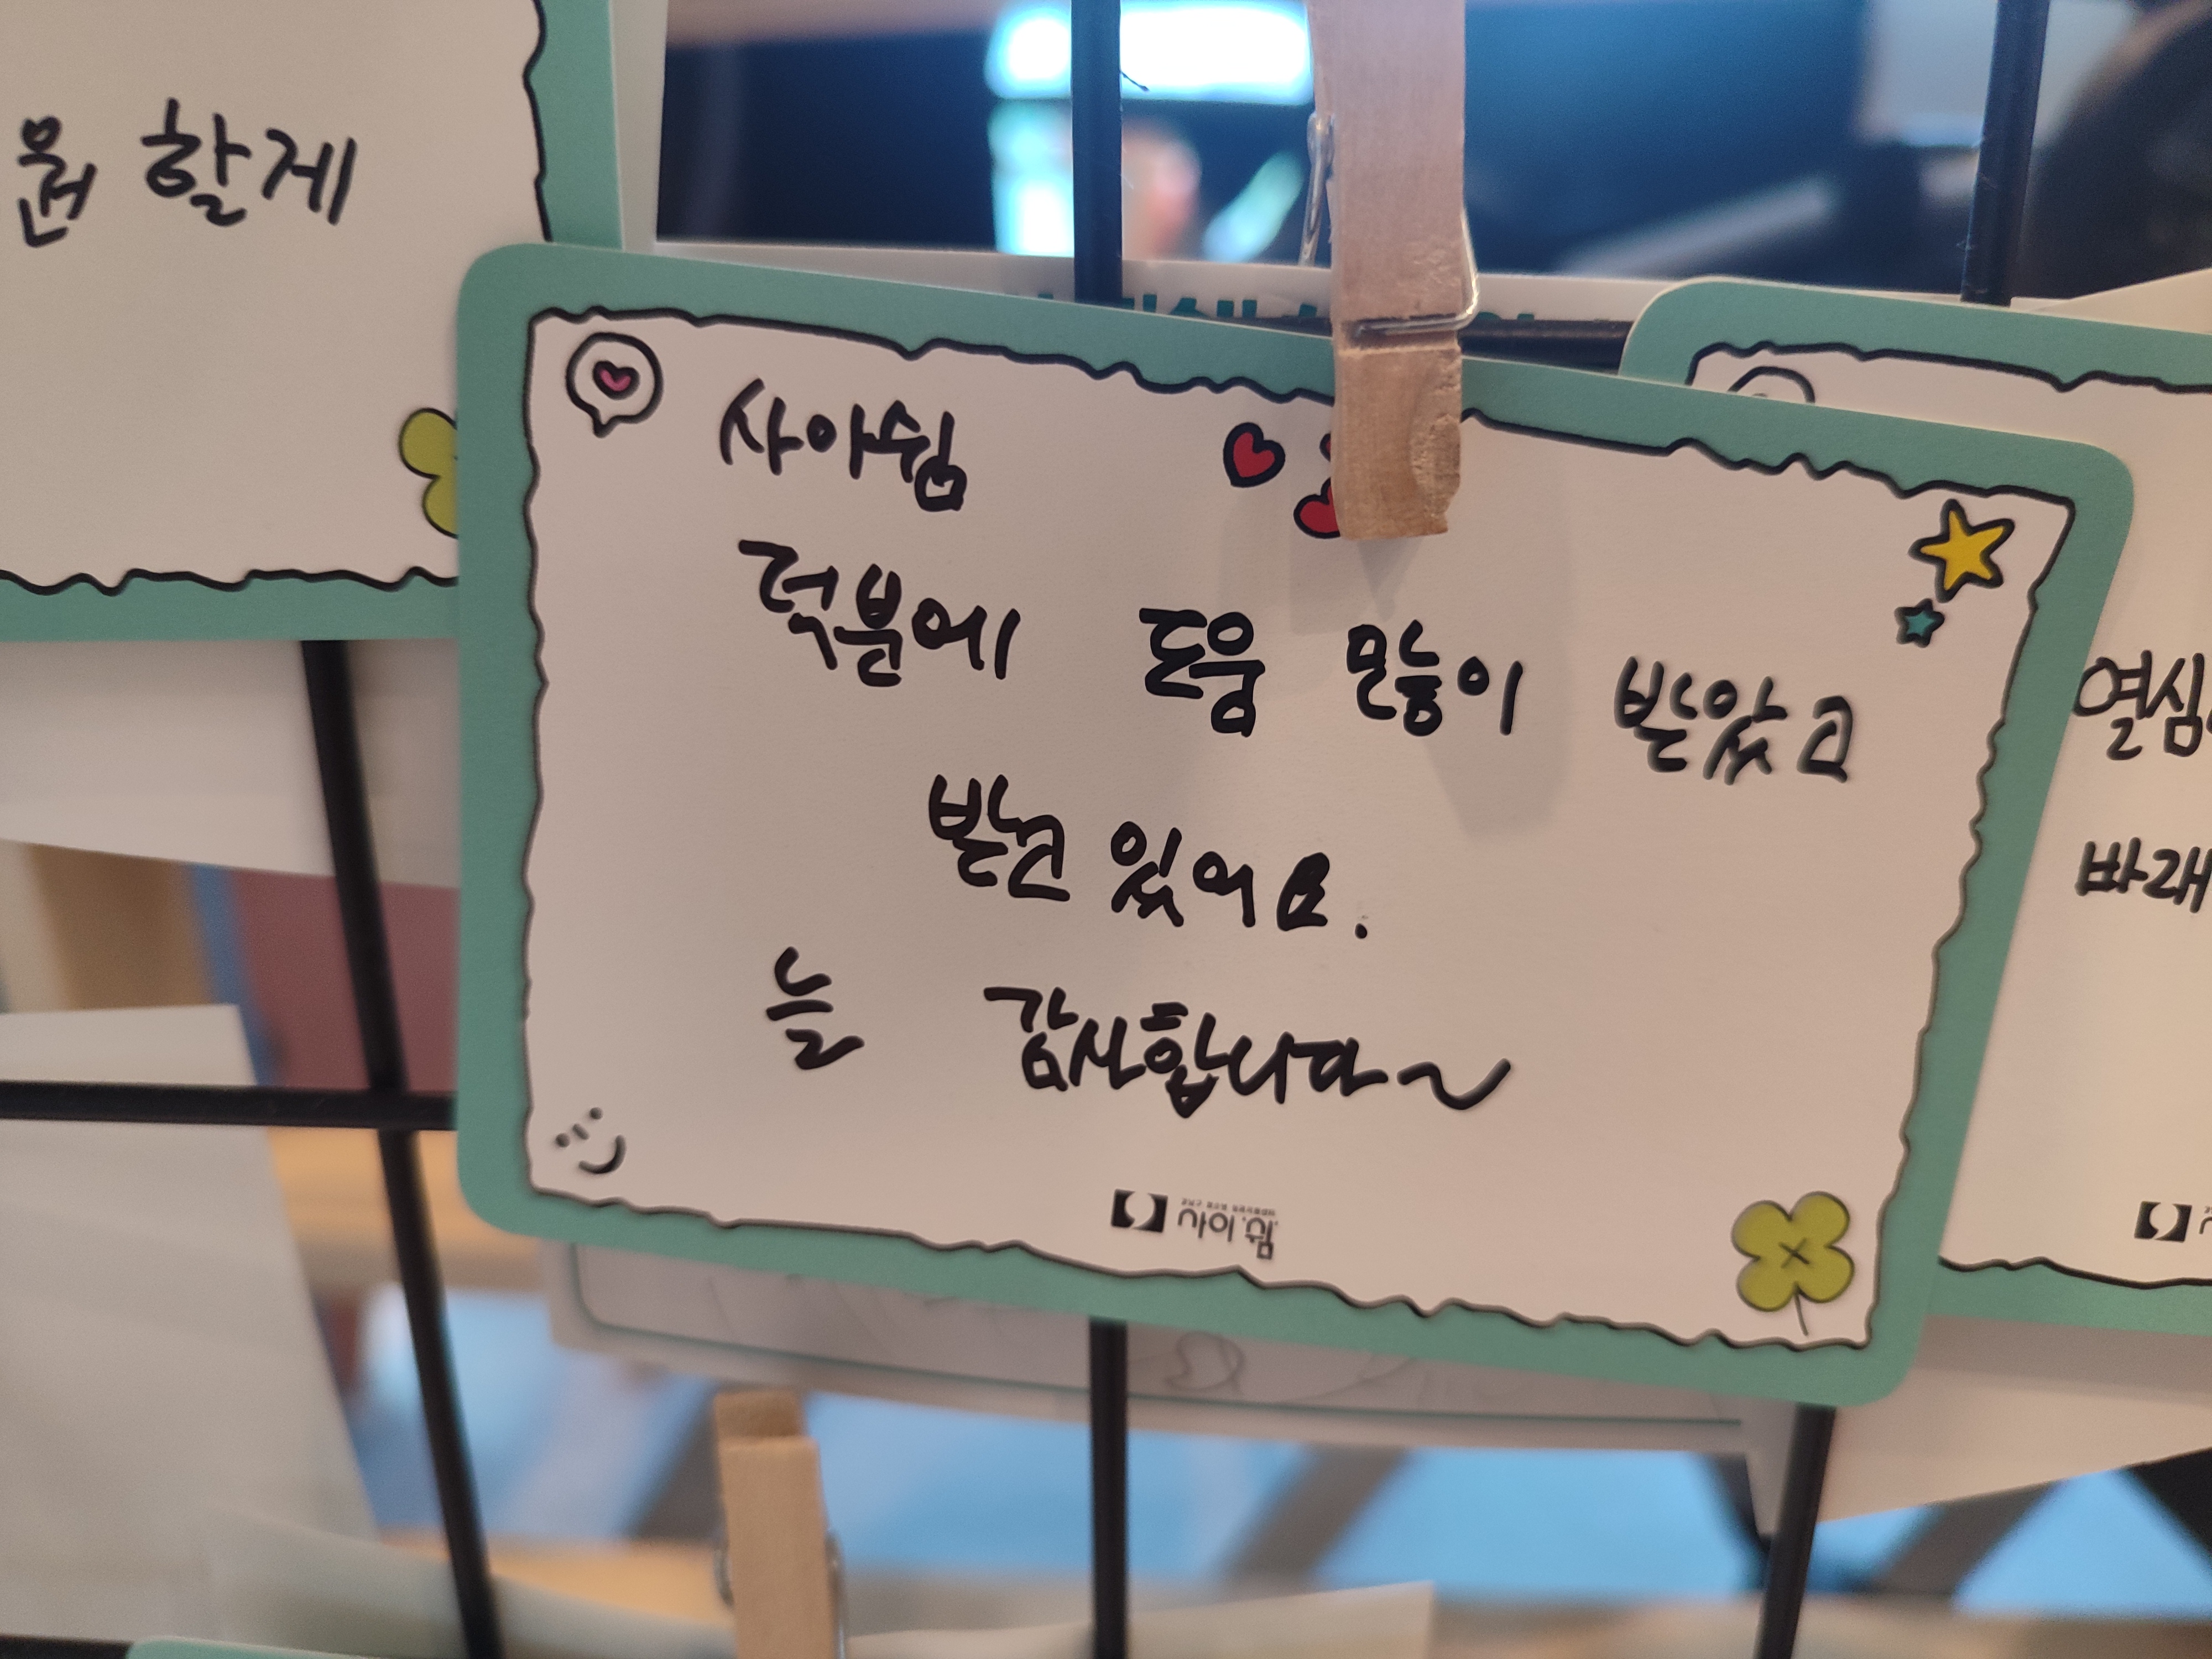 원 할게
사이쉼
덕분에 도움 많이 받았고
받고 있어요.
늘 감사합니다~
열심
바래